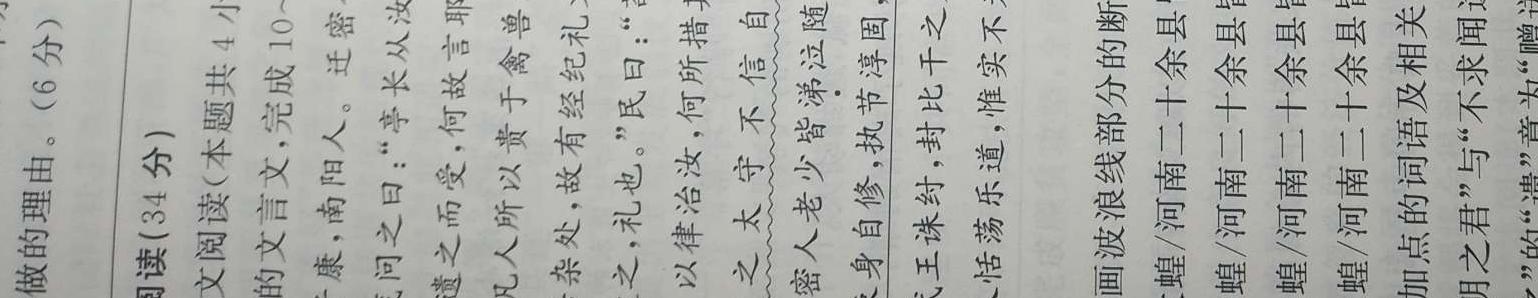 做的理由。(6分)
阅读(34分)
文阅读(本题共4小
的文言文,完成10~
康,南阳人。迁密
问之曰:“亭长从汝
遗之而受,何故言耶
凡人所以贵于禽兽
杂处,故有经纪礼
之,礼也。”民曰:“
以律治汝,何所措
之太守不信自
密人老少皆涕泣随
身自修,执节淳固,
王诛纣,封比干之
恬荡乐道,惟实不
画波浪线部分的断
蝗/河南二十余县
蝗/河南二十余县皆
蝗/河南二十余县皆
蝗/河南二十余县皆
加点的词语及相关
月之君”与“不求闻
”的“遗”意为“赠